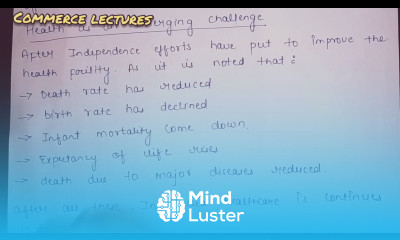 Commerce lectures
Health as an emerging challenge
After Independence efforts have put to improve the
health facility. As it is noted that:
→ Death rate has reduced
→ birth rate has declined
→ Infant mortality come down
→ Expetancy of life rises
→ death due to major diseases reduced.
After all then healthcare is continues
Mind
Luster